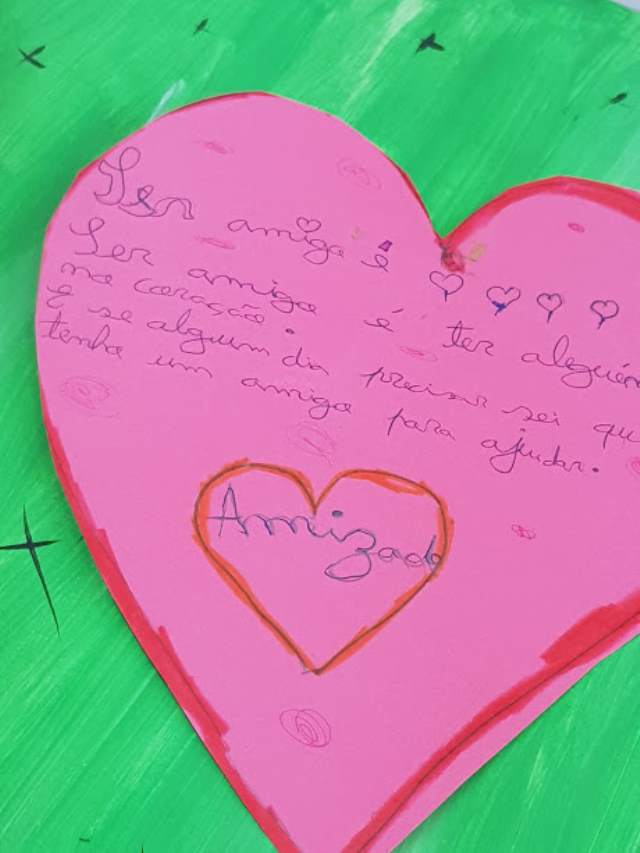 Ser amigo é
Ser amigo é ter alguém
no coração.
E se algum dia precisar sei que
tenho um amigo para ajudar.
Amizade